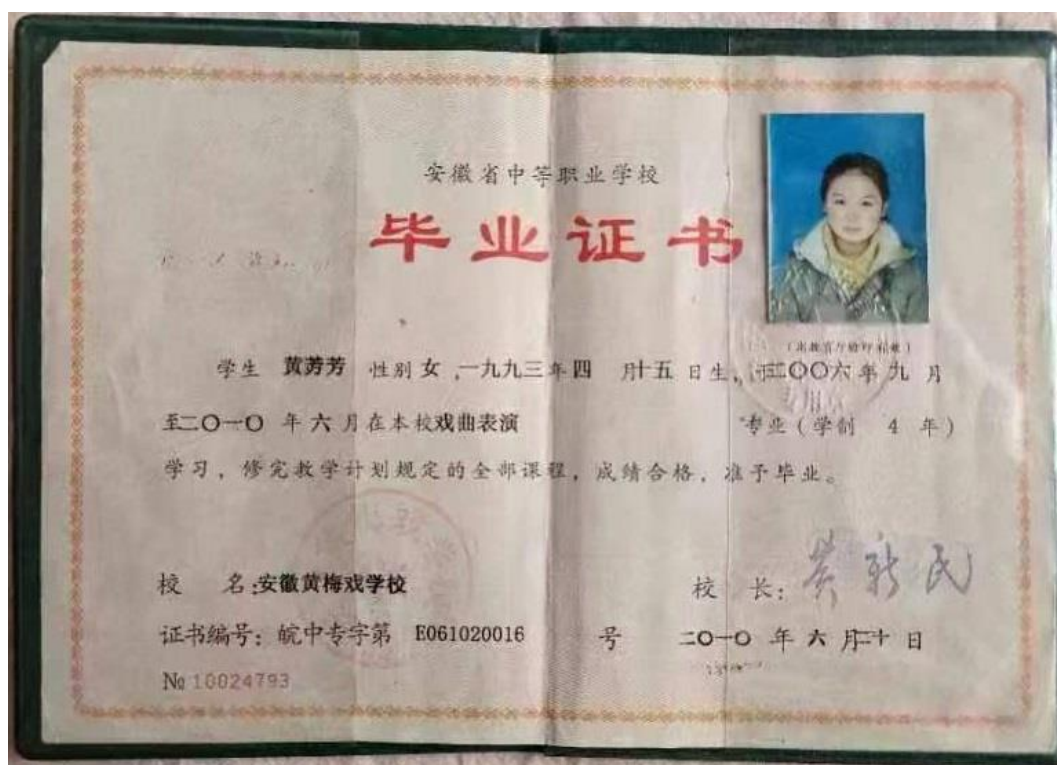 安徽省中等职业学校
毕业证书
学生 黄芳芳 性别女,一九九三年四 月十五 日生,于二〇〇六年九月
至二〇一〇 年六月在本校戏曲表演 专业(学制 4 年)
学习,修完教学计划规定的全部课程,成绩合格,准予毕业。
校 名:安徽黄梅戏学校
校 长:
证书编号:皖中专字第 E061020016 号
二〇一〇 年六月二十日
№ 10024793